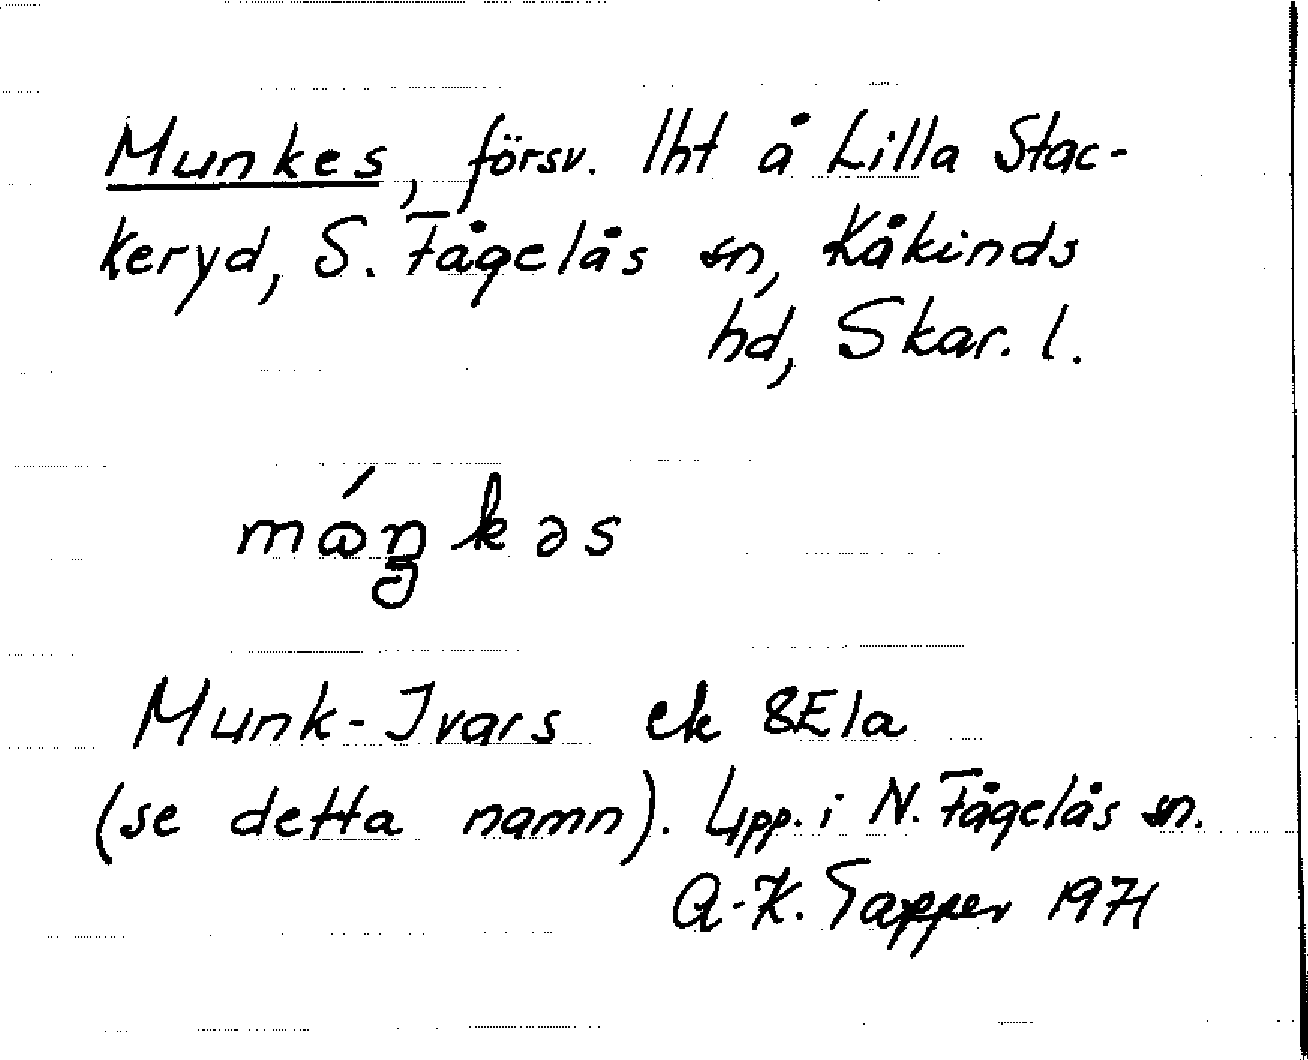 Munkes, försv. lht å Lilla Stac-
keryd, S. Fågelås sn, Kåkinds
hd, Skar. l.
món̡kəs
Munk-Ivars ek 8E1a
(se detta namn). Upp. i N. Fågelås sn.
A-K. Tapper 1971